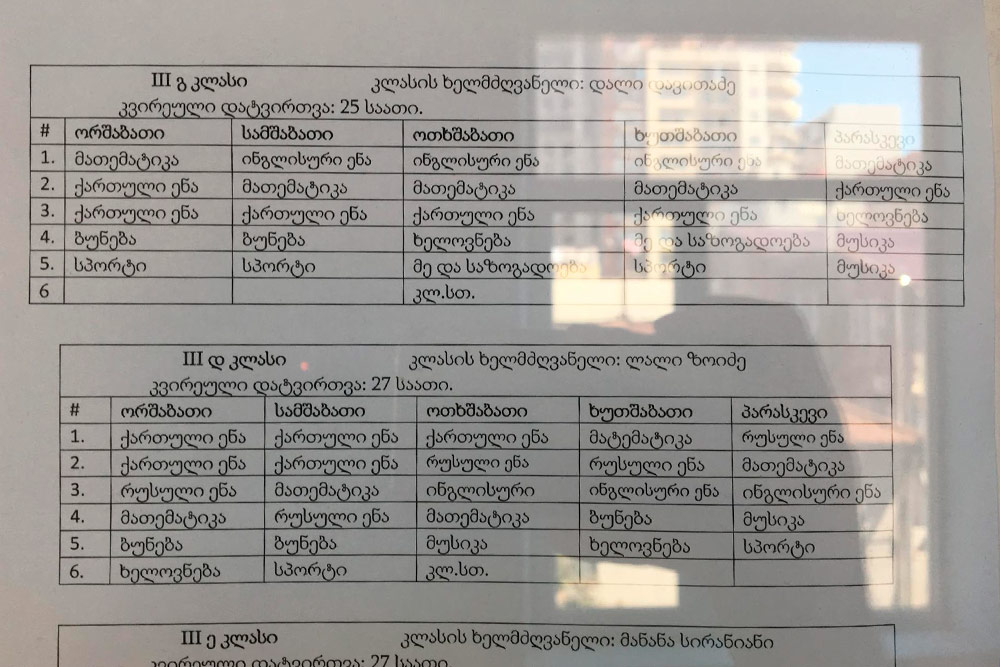 III გ კლასი კლასის ხელმძღვანელი: დალი დავითაძე
კვირეული დატვირთვა: 25 საათი.
# ორშაბათი სამშაბათი ოთხშაბათი ხუთშაბათი პარასკევი
1. მათემატიკა ინგლისური ენა ინგლისური ენა ინგლისური ენა მათემატიკა
2. ქართული ენა მათემატიკა მათემატიკა მათემატიკა ქართული ენა
3. ქართული ენა ქართული ენა ქართული ენა ქართული ენა ხელოვნება
4. ბუნება ბუნება ხელოვნება მე და საზოგადოება მუსიკა
5. სპორტი სპორტი მე და საზოგადოება სპორტი მუსიკა
6 კლ.სთ.
III დ კლასი კლასის ხელმძღვანელი: ლალი ზოიძე
კვირეული დატვირთვა: 27 საათი.
# ორშაბათი სამშაბათი ოთხშაბათი ხუთშაბათი პარასკევი
1. ქართული ენა ქართული ენა ქართული ენა მატემატიკა რუსული ენა
2. ქართული ენა ქართული ენა რუსული ენა რუსული ენა მათემატიკა
3. რუსული ენა მათემატიკა ინგლისური ინგლისური ენა ინგლისური ენა
4. მათემატიკა რუსული ენა მათემატიკა ბუნება მუსიკა
5. ბუნება ბუნება მუსიკა ხელოვნება სპორტი
6. ხელოვნება სპორტი კლ.სთ.
III ე კლასი კლასის ხელმძღვანელი: მანანა სირანიანი
კვირეული დატვირთვა: 27 საათი.